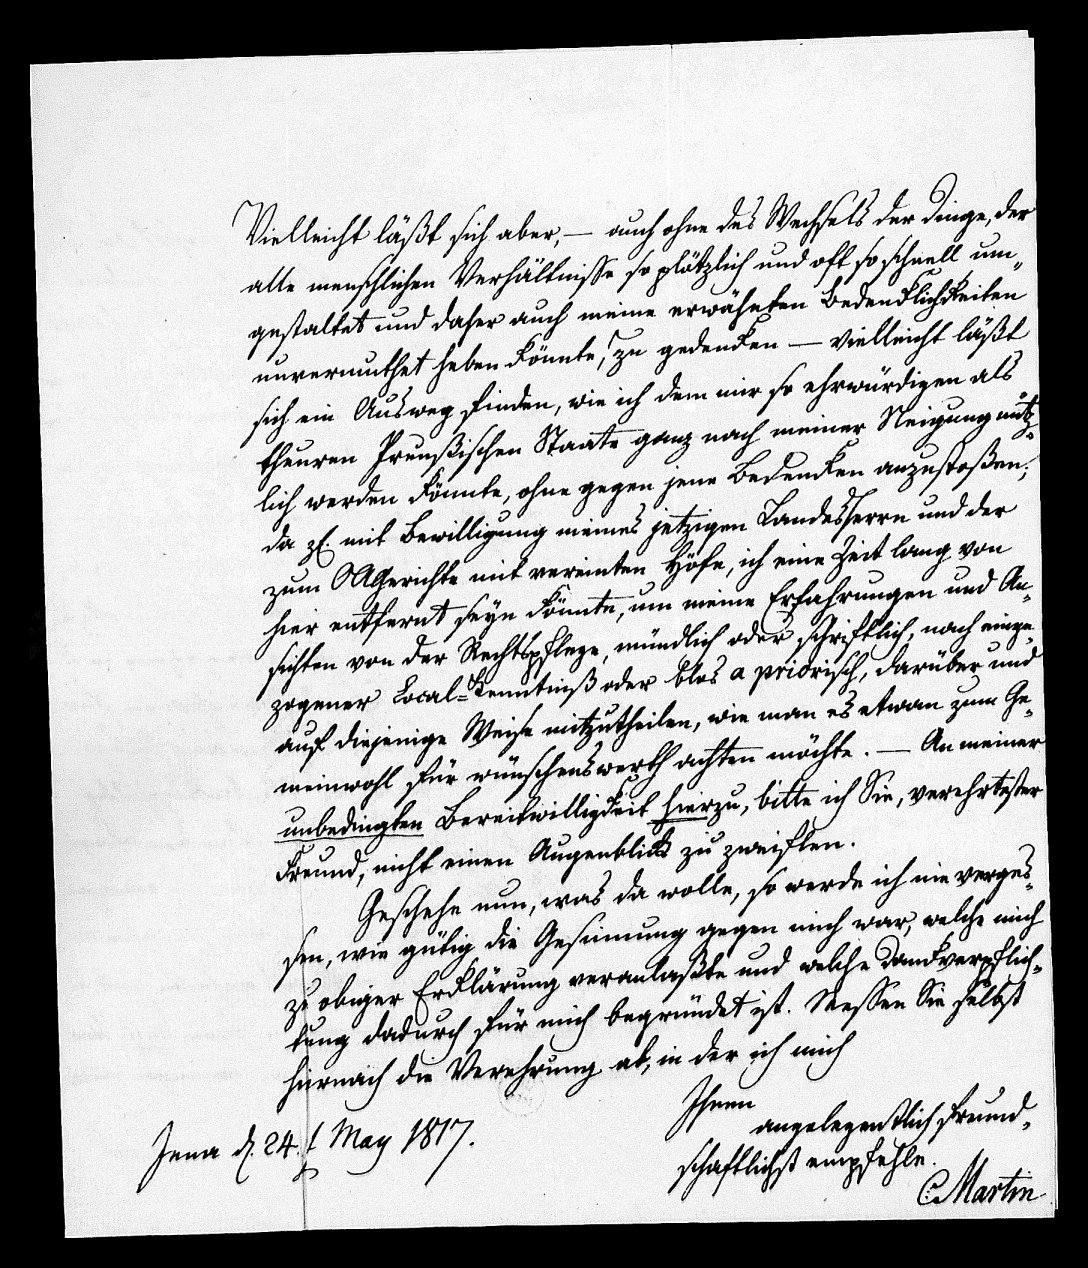 Vielleicht läßt sich aber, — auch ohne des Wechsels der Dinge, der
alle menschlichen Verhältnisse so plötzlich und oft so schnell um-
gestaltet und daher auch meine erwähnten Bedencklichkeiten
unvermuthet heben könnte, zu gedencken — vielleicht läßt
sich ein Ausweg finden, wie ich dem mir so ehrwürdigen als
theuren Preußischen Staate ganz nach meiner Neigung nütz-
lich werden könnte, ohne gegen jene Bedencken anzustoßen;
da z. mit Bewilligung meines jetzigen Landesherrn und der
zum OAGerichte mit vereinten Höfe, ich eine Zeit lang von
hier entfernt seyn könnte, um meine Erfahrungen und An-
sichten von der Rechtspflege, mündlich oder schriftlich, nach einge-
zogener Local-Kenntniß oder blos a priorisch, darüber und
auf diejenige Weise mitzutheilen, wie man es etwan zum Ge-
meinwohl für wünschenswerth achten möchte. — An meiner
unbedingten Bereitwilligkeit hierzu, bitte ich Sie, verehrtester
Freund, nicht einen Augenblick zu zweiflen.
Geschehe nun, was da wolle, so werde ich nie verges-
sen, wie gütig die Gesinnung gegen mich war, welche mich
zu obiger Erklärung veranlaßte und welche Danckverpflich-
tung dadurch für mich begründet ist. Messen Sie selbst
hiernach die Verehrung ab, in der ich mich
Ihnen
angelegentlich freund-
schaftlichst empfehle.
Jena d. 24.t May 1817.
C. Martin